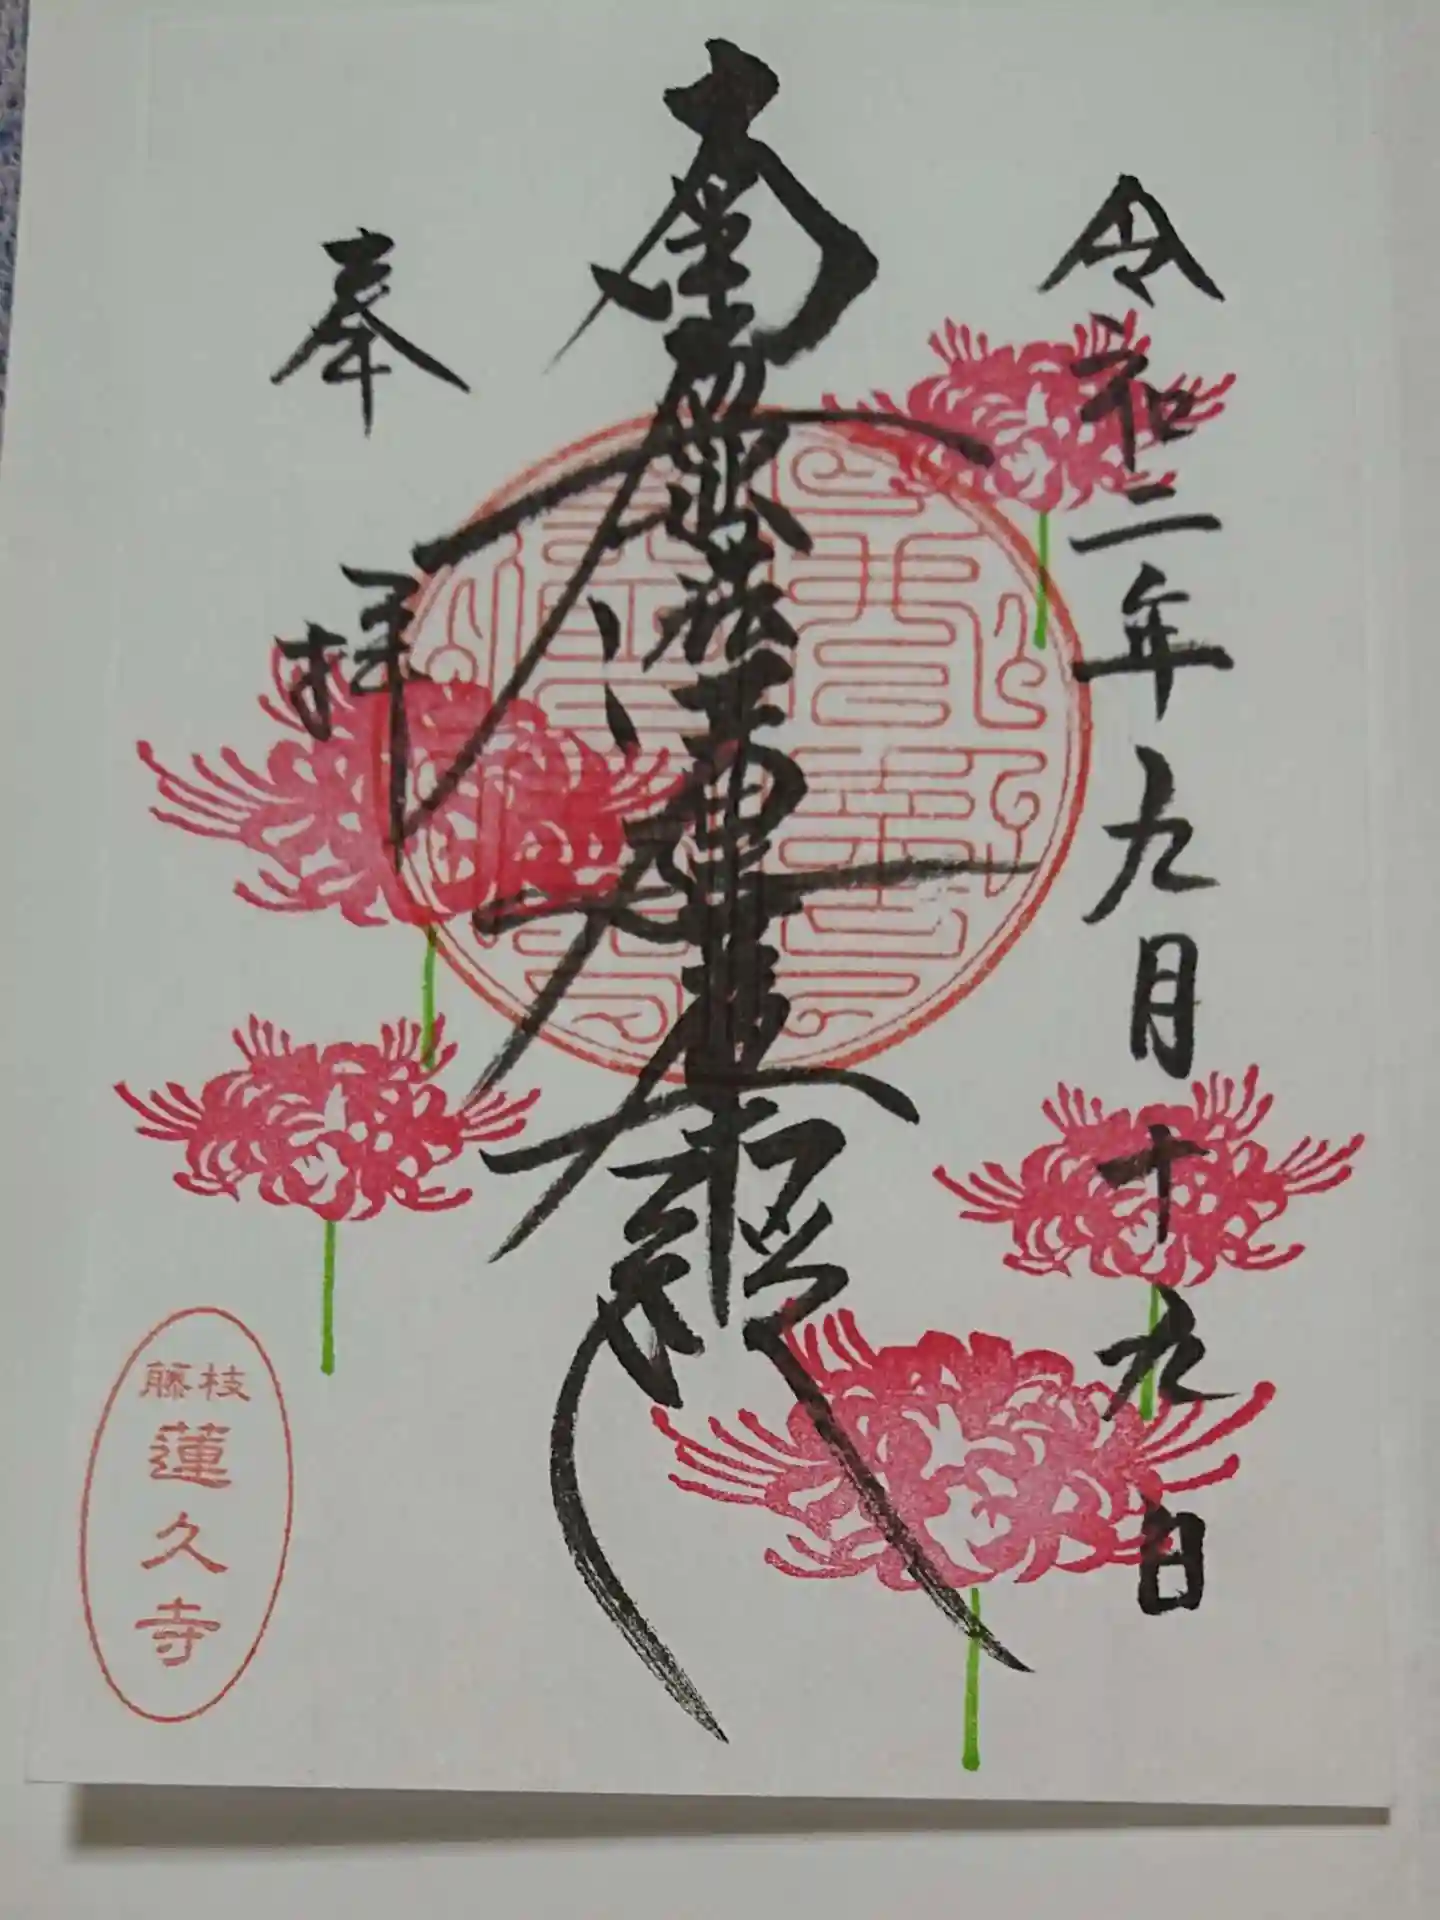 令和二年九月十九日
南無妙法蓮華経
奉拝
藤枝
蓮久寺